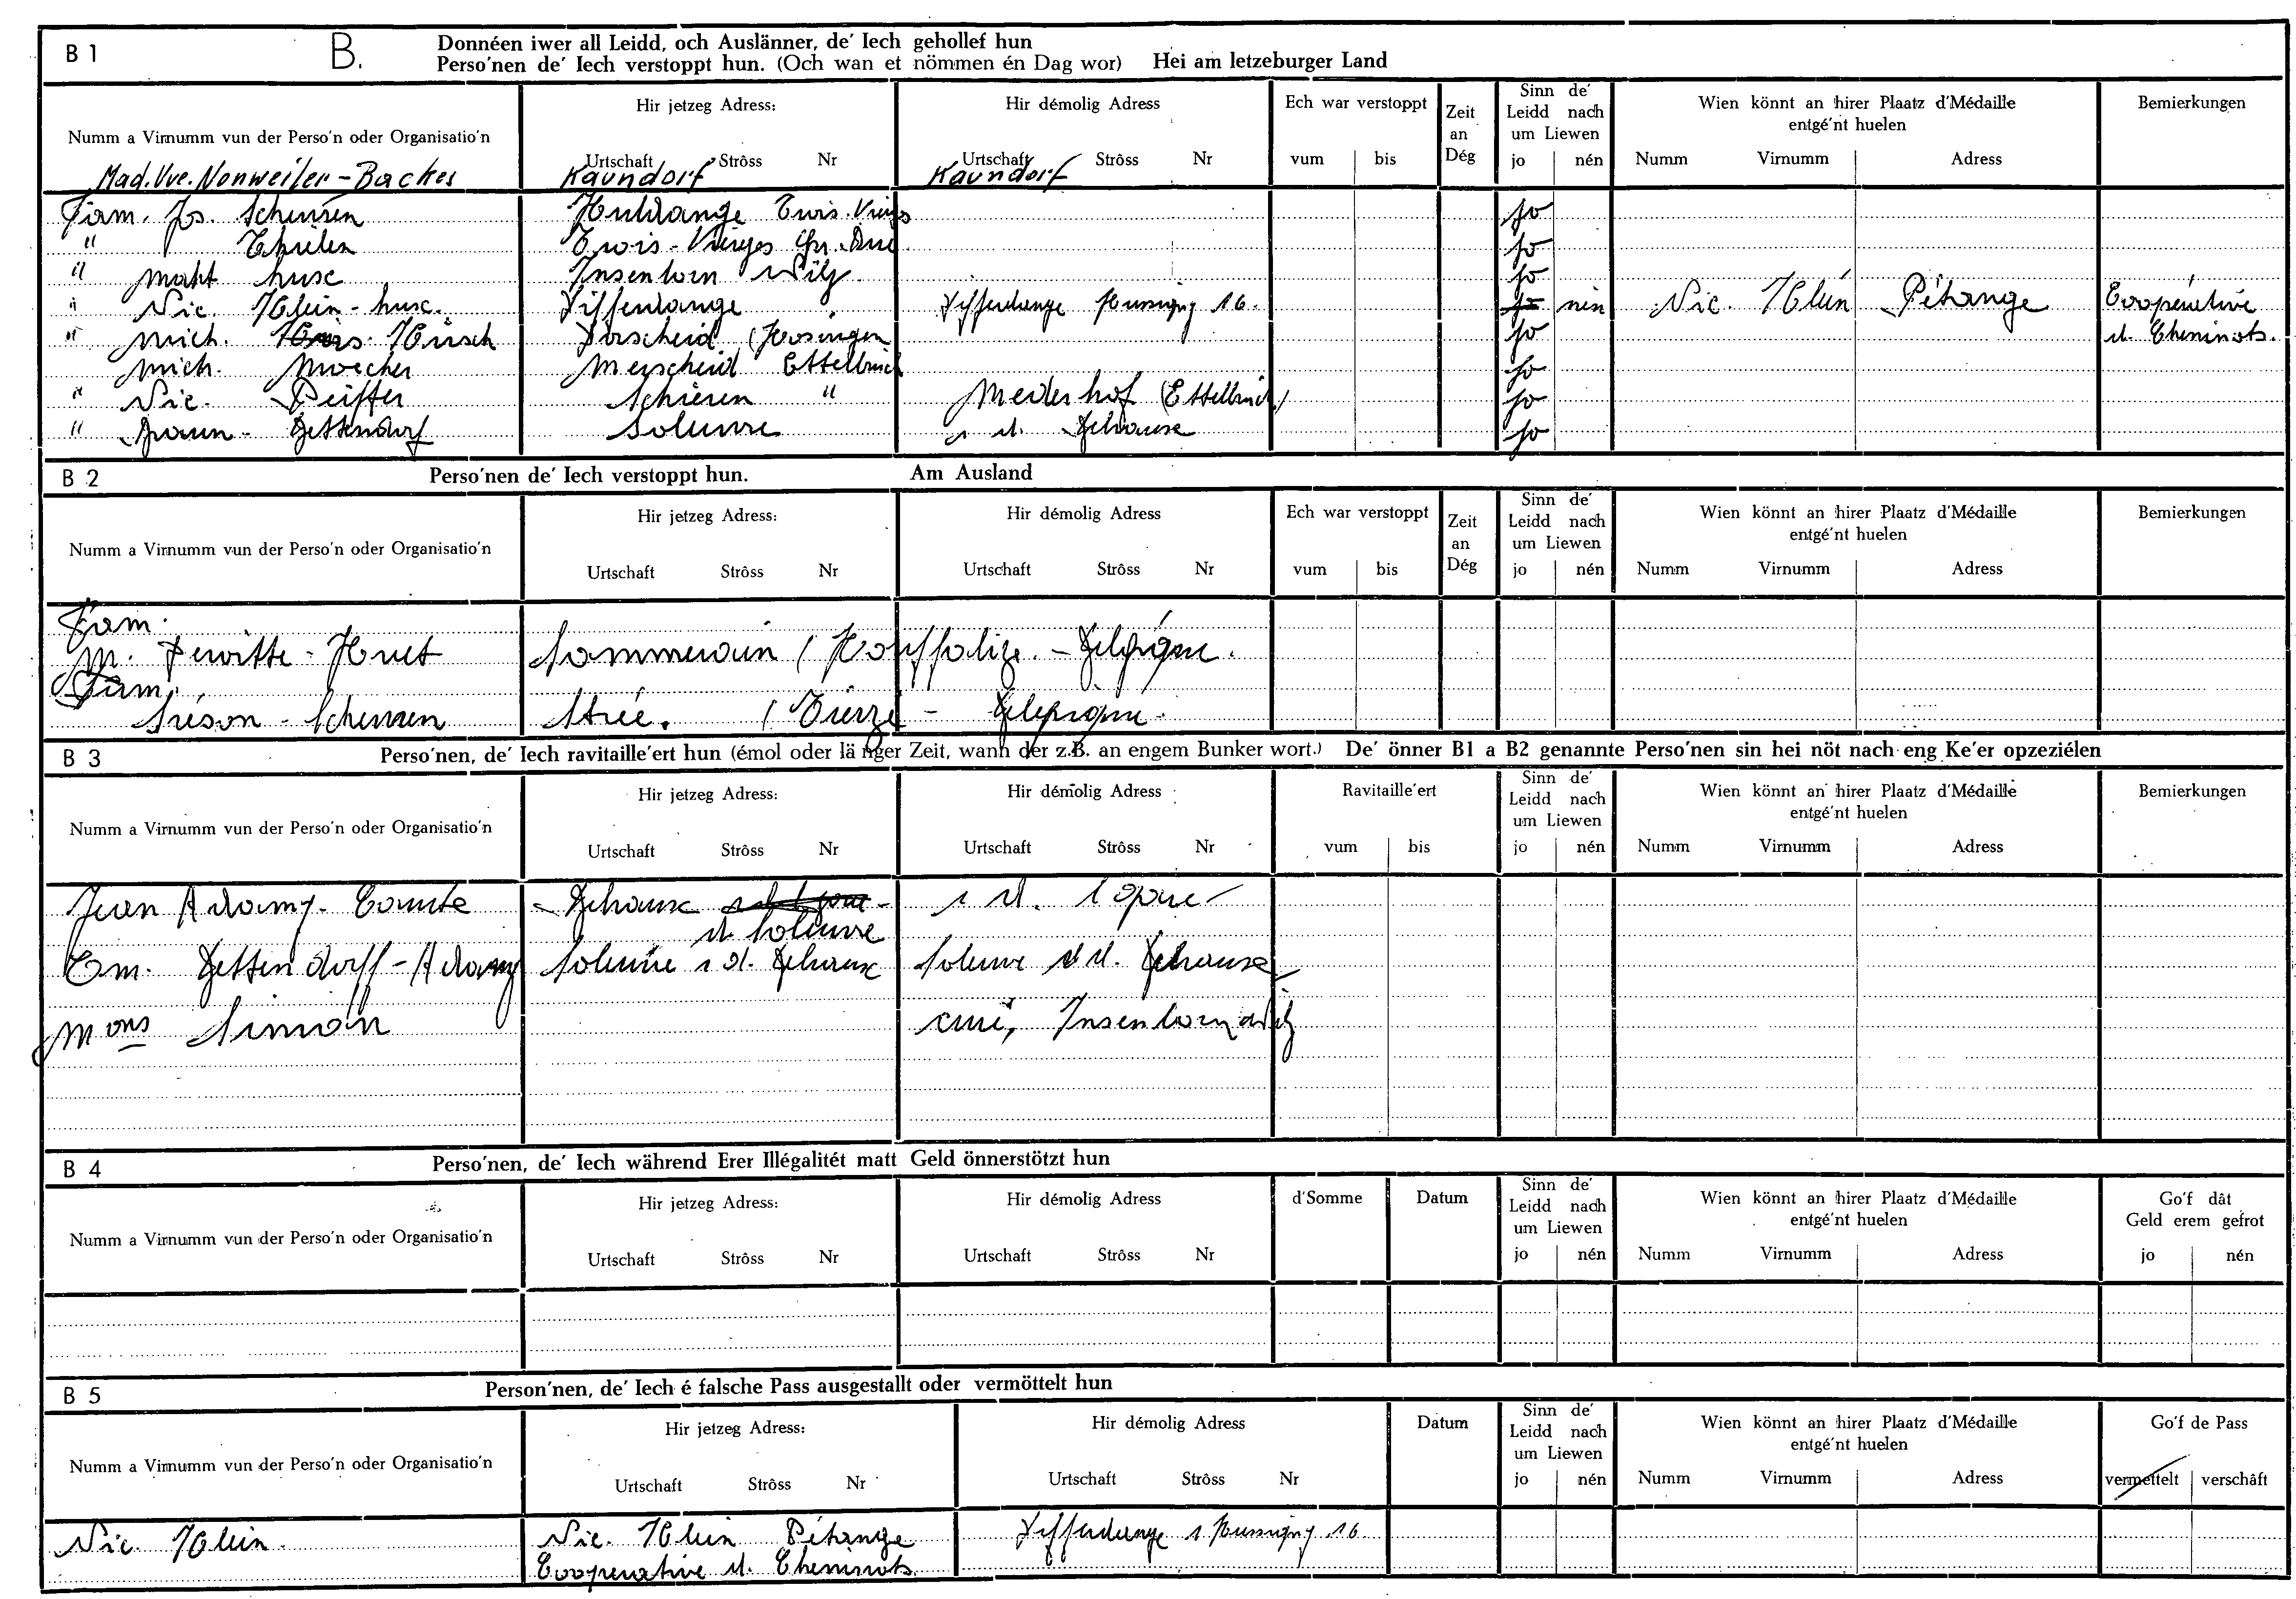 B 1 B. Donnéen iwer all Leidd, och Auslänner, de' Iech gehollef hun
Perso'nen de' Iech verstoppt hun. (Och wan et nömmen én Dag wor) Hei am letzeburger Land
Numm a Virnumm vun der Perso'n oder Organisatio'n Hir jetzeg Adress: Hir démolig Adress Ech war verstoppt Zeit an Dég Sinn de' Leidd nach um Liewen Wien könnt an hirer Plaatz d'Médaille entgé'nt huelen Bemierkungen
Urtschaft Strôss Nr Urtschaft Strôss Nr vum bis jo nén Numm Virnumm Adress
Mad. Vve. Nonweiler - Backes Kaundorf Kaundorf
Fam. Jos. Scheuren Huldange Trois. Vierges jo
" Thielen Trois - Vierges jo
" Maht husc Insenborn Wilz jo
" Nic. Klein - husc. Differdange Differdange Hussigny 16. nén Nic. Klein Pétange Coopérative
" Mich. Kirsch Dorscheid (Hosingen jo d. Cheminots.
Mich. Merscheid Ettelbruck jo
" Nic. Peiffer Schieren " (Ettelbruck) jo
" Braun - Bettendorf Soleuvre r d. Belvaux jo
B 2 Perso'nen de' Iech verstoppt hun. Am Ausland
Numm a Virnumm vun der Perso'n oder Organisatio'n Hir jetzeg Adress: Hir démolig Adress Ech war verstoppt Zeit an Dég Sinn de' Leidd nach um Liewen Wien könnt an hirer Plaatz d'Médaille entgé'nt huelen Bemierkungen
Urtschaft Strôss Nr Urtschaft Strôss Nr vum bis jo nén Numm Virnumm Adress
Fam.
M. Dewitte - Huet Sommerain (Houffalize. - Belgique.
Fam.
- Scheuren Strée. - Belgique.
B 3 Perso'nen, de' Iech ravitaille'ert hun (émol oder länger Zeit, wann der z.B. an engem Bunker wort.) De' önner B1 a B2 genannte Perso'nen sin hei nöt nach eng Ke'er opzeziélen
Numm a Virnumm vun der Perso'n oder Organisatio'n Hir jetzeg Adress: Hir démolig Adress Ravitaille'ert Sinn de' Leidd nach um Liewen Wien könnt an hirer Plaatz d'Médaille entgé'nt huelen Bemierkungen
Urtschaft Strôss Nr Urtschaft Strôss Nr vum bis jo nén Numm Virnumm Adress
Jean Adamy - Comte Belvaux r d.
d Soleuvre
Em. Bettendorff - Adamy Soleuvre r d. Belvaux Soleuvre r d. Belvaux
Mons Simon curé, Insenborn
B 4 Perso'nen, de' Iech während Erer Illégalitét matt Geld önnerstötzt hun
Numm a Virnumm vun der Perso'n oder Organisatio'n Hir jetzeg Adress: Hir démolig Adress d'Somme Datum Sinn de' Leidd nach um Liewen Wien könnt an hirer Plaatz d'Médaille entgé'nt huelen Go'f dât Geld erem gefrot
Urtschaft Strôss Nr Urtschaft Strôss Nr jo nén Numm Virnumm Adress jo nén
B 5 Person'nen, de' Iech é falsche Pass ausgestallt oder vermöttelt hun
Numm a Virnumm vun der Perso'n oder Organisatio'n Hir jetzeg Adress: Hir démolig Adress Datum Sinn de' Leidd nach um Liewen Wien könnt an hirer Plaatz d'Médaille entgé'nt huelen Go'f de Pass
Urtschaft Strôss Nr Urtschaft Strôss Nr jo nén Numm Virnumm Adress vermettelt verschâft
Nic. Klein. Nic. Klein Pétange Differdange r Hussigny 16
Cooperative d. Cheminots